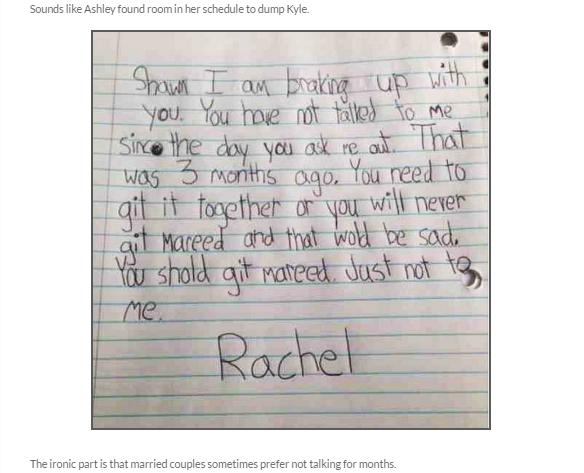 Sounds like Ashley found room in her schedule to dump Kyle.
Shawn I am braking up with
you. You have not talked to me
since the day you ask me out. That
was 3 months ago. You need to
git it together or you will never
git mareed and that wold be sad.
You shold git mareed. Just not to
me.
Rachel
The ironic part is that married couples sometimes prefer not talking for months.